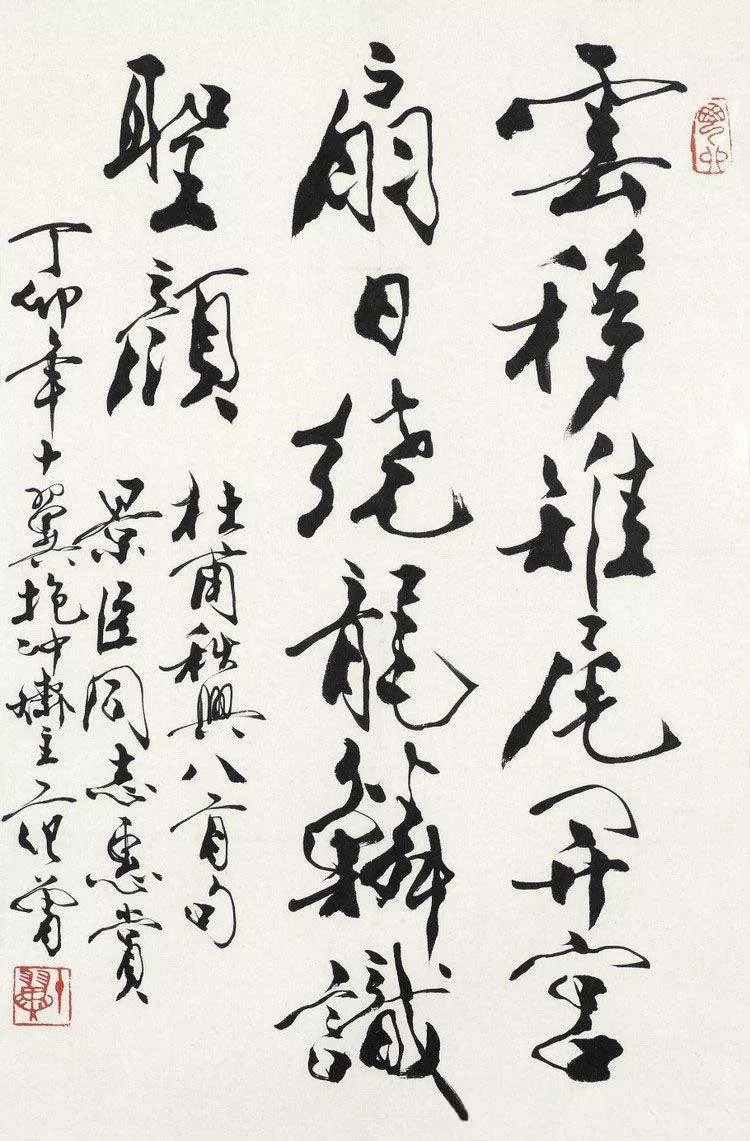 雲移雉尾開宮
扇日繞龍鱗識
聖顏
杜甫秋興八首句
景臣同志惠賞
丁卯年十翼抱冲齋主范曾